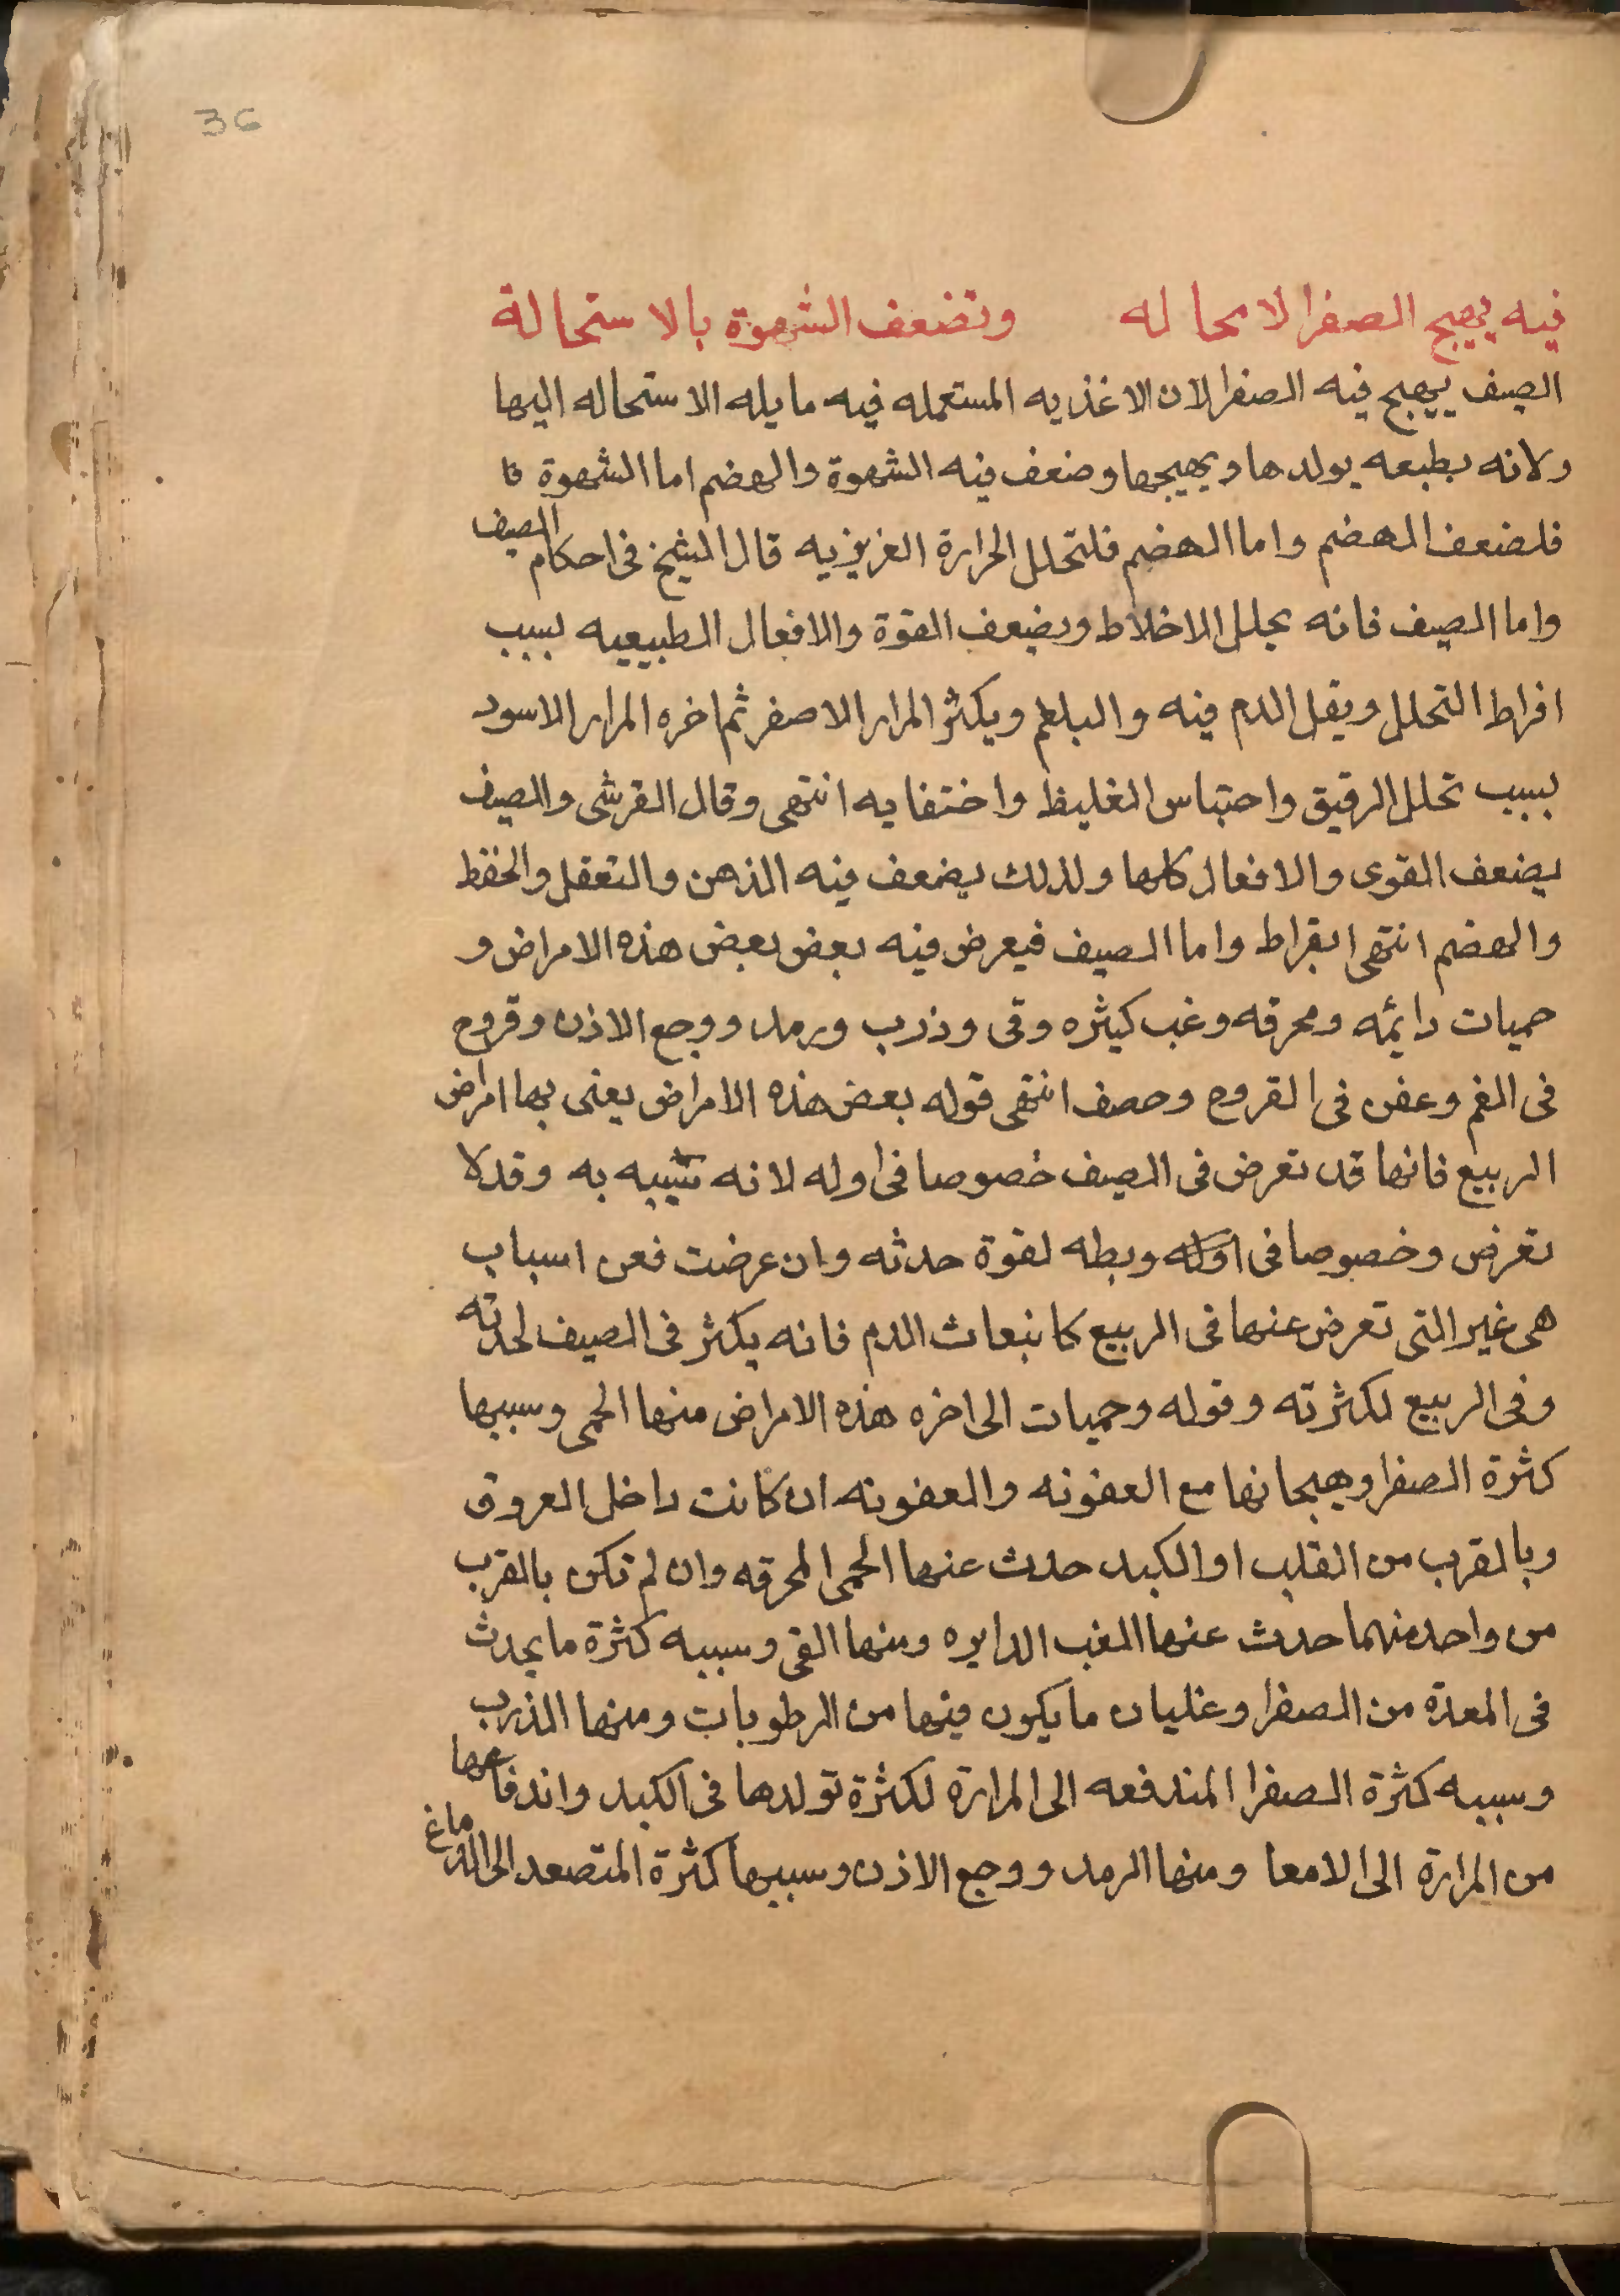 36
فيه يهيج الصفرا لا محاله وتضعف الشهوة بالاستحالة
الصيف يهيج فيه الصفرا لان الاغذيه المستعمله فيه مايله الاستحاله اليها
ولانه بطبعه يولدها ويهيجها وضعف فيه الشهوة والهضم اما الشهوة فا
فلضعف الهضم واما الهضم فلتحلل الحرارة الغريزيه قال الشيخ فى احكام الصيف
واما الصيف فانه يحلل الاخلاط ويضعف القوة والافعال الطبيعيه لسبب
افراط التحلل ويقل الدم فيه والبلغم ويكثر المرار الاصفر ثم اخره المرار الاسود
لسبب تحلل الرقيق واحتباس الغليظ واختفايه انتهى وقال القرشى والصيف
يضعف القوى والافعال كلها ولذلك يضعف فيه الذهن والتعقل والحفظ
والهضم انتهى ابقراط واما الصيف فيعرض فيه بعض بعض هذه الامراض و
حميات دايمه ومحرقه وغب كثيره وقى وذرب ورمد ووجع الاذن وقروح
فى الفم وعفن فى القروح وحصف انتهى قوله بعض هذه الامراض يعنى بها امراض
الربيع فانها قد تعرض فى الصيف خصوصا فى اوله لانه شبيه به وقد لا
تعرض وخصوصا فى اوله وبطه لقوة حدته وان عرضت فعن اسباب
هى غير التى تعرض عنها فى الربيع كانبعاث الدم فانه يكثر فى الصيف لحدته
وفى الربيع لكثرته وقوله وحميات الى اخره هذه الامراض منها الحمى وسببها
كثرة الصفرا وهيجانها مع العفونه والعفونه ان كانت داخل العروق
وبالقرب من القلب او الكبد حدث عنها الحمى المحرقه وان لم تكن بالقرب
من واحد منهما حدث عنها الغب الدايره ومنها القى وسببه كثرة ما يحدث
فى المعدة من الصفرا وغليان ما يكون فيها من الرطوبات ومنها الذرب
وسببه كثرة الصفرا المندفعه الى المرارة لكثرة تولدها فى الكبد واندفاعها
من المرارة الى الامعا ومنها الرمد ووجع الاذن وسببها كثرة المتصعد الى الدماغ